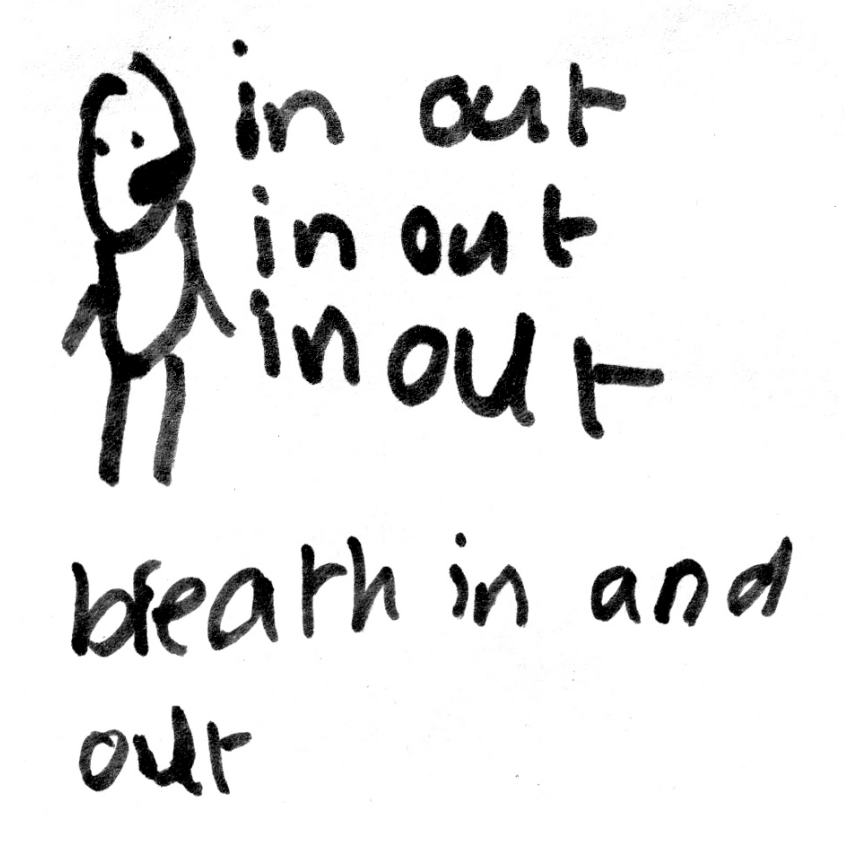 in out
in out
in out
breath in and
out